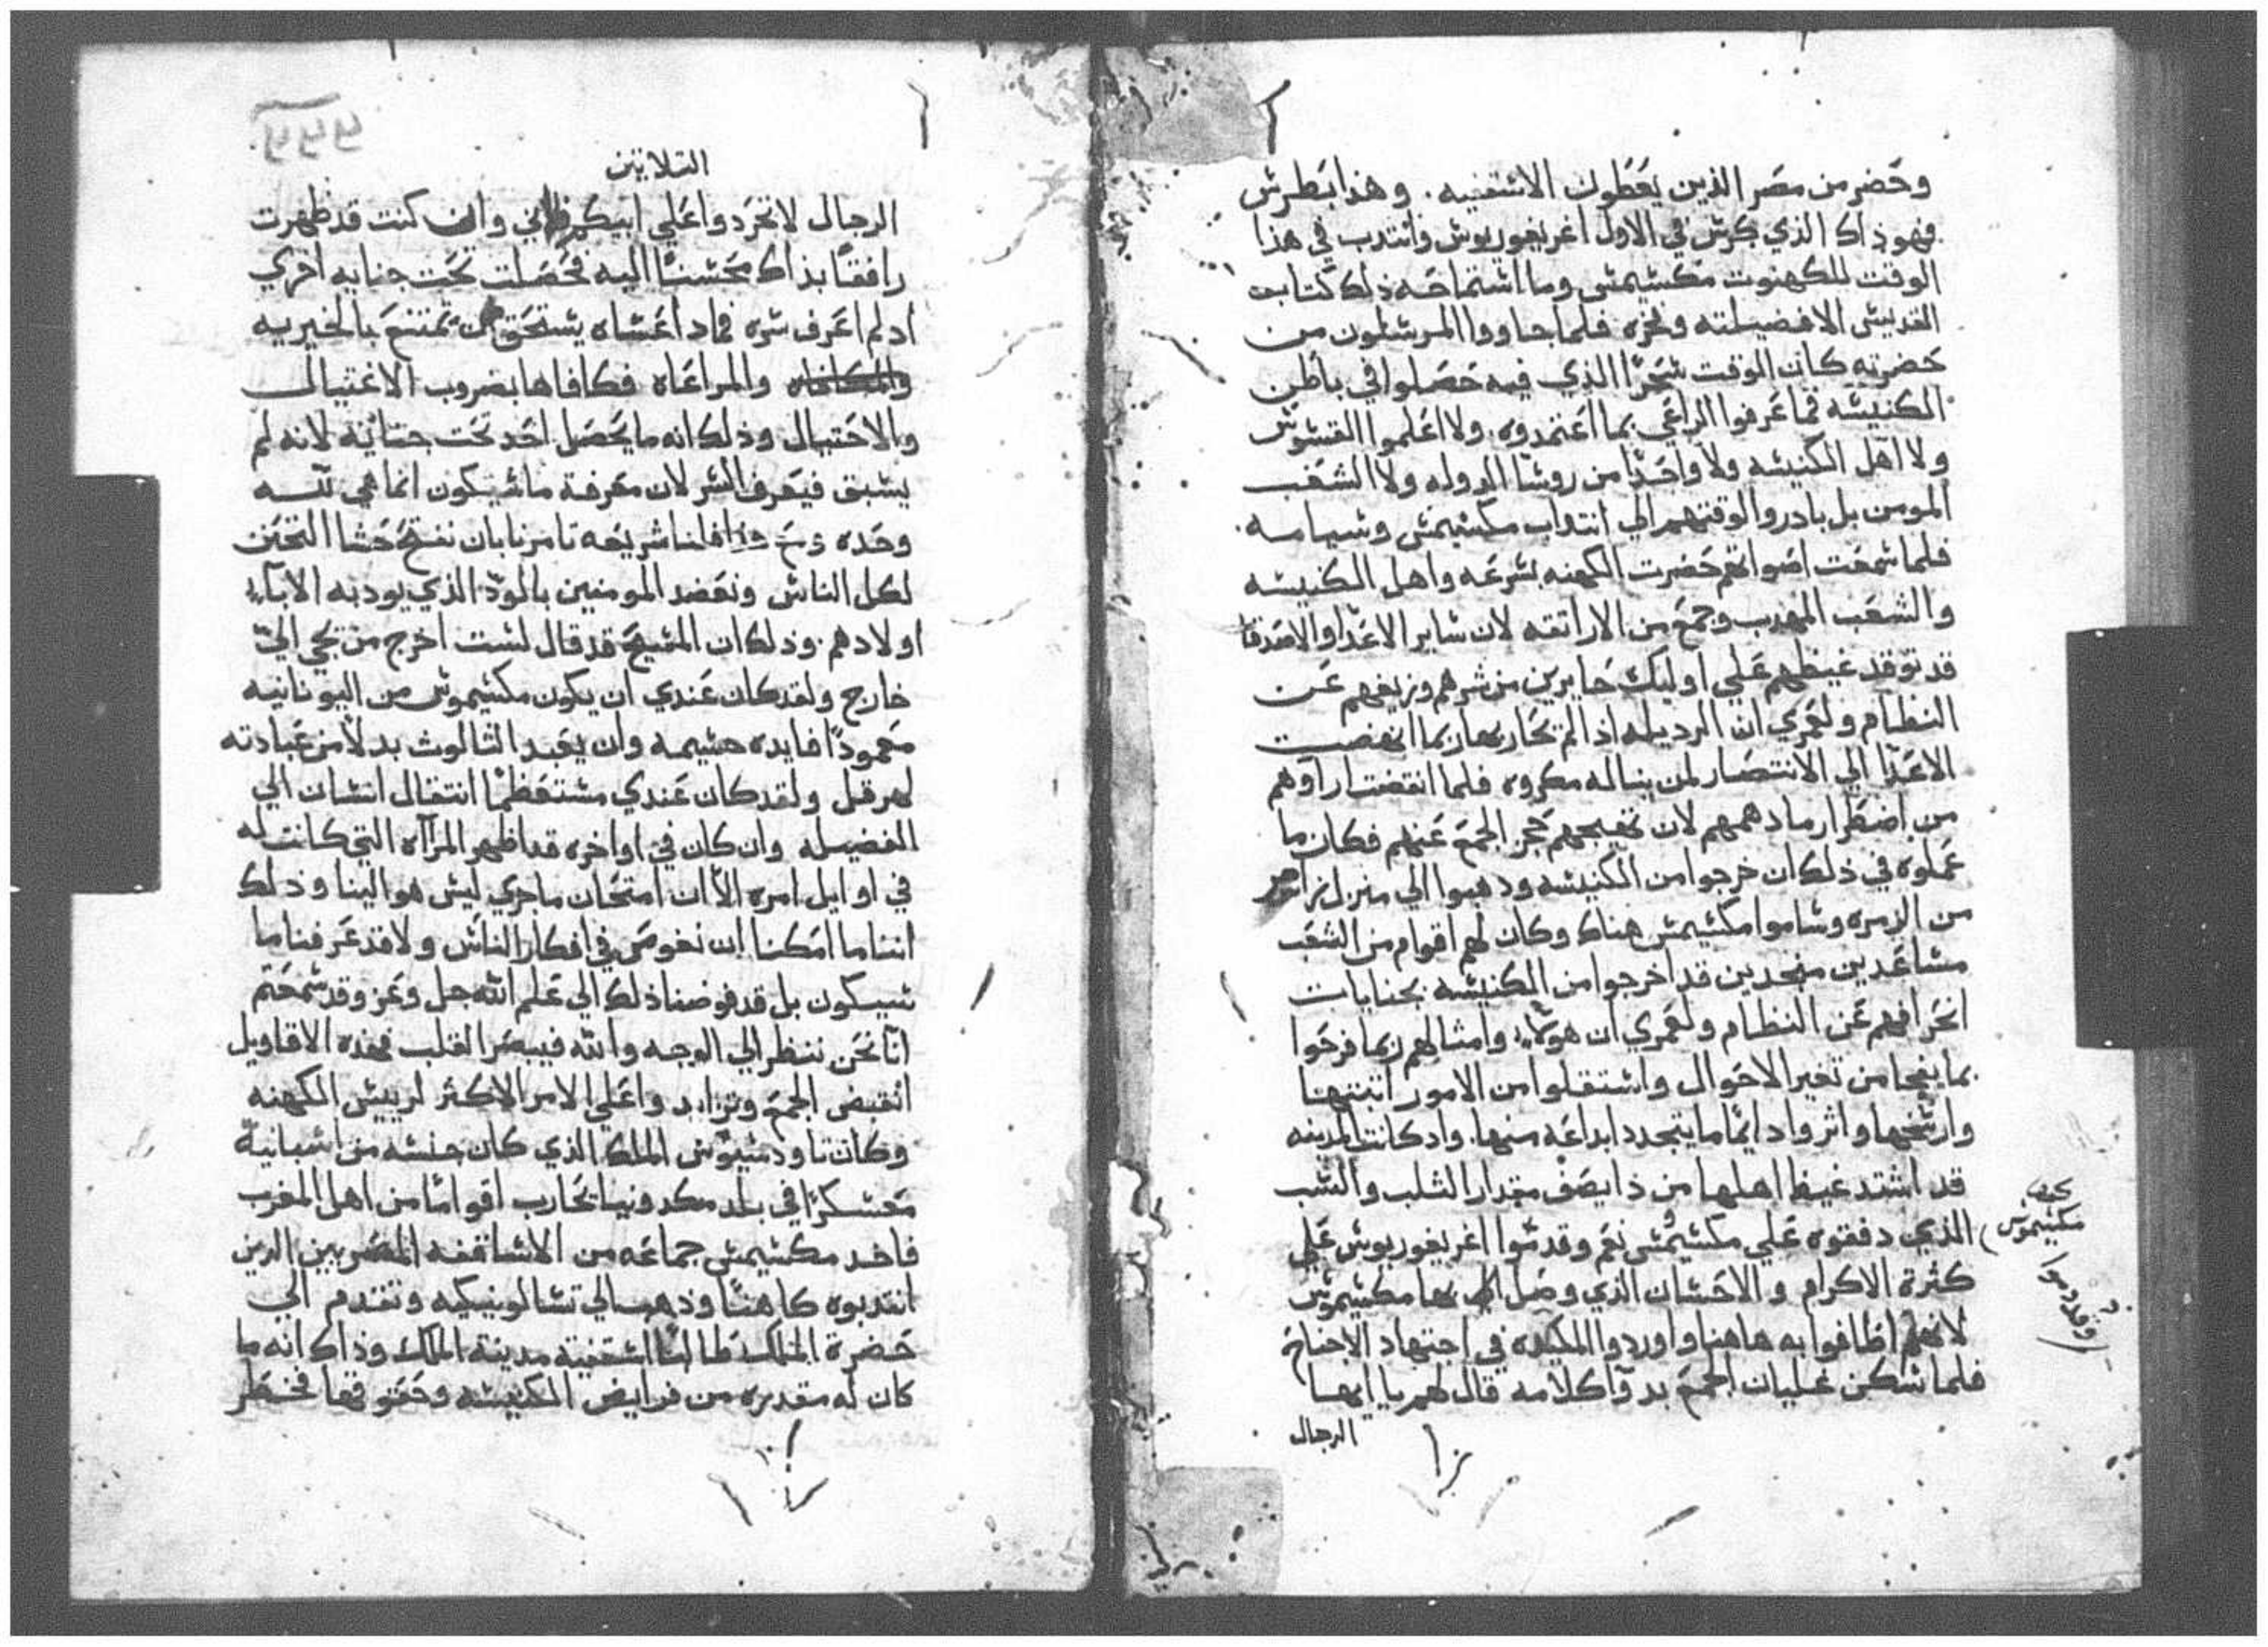 وحضر من مصر الذين يعطون الاسقفيه. وهذا بطرس
فهو ذاك الذي كرس في الاول اغريغوريوس وانتدب في هذا
الوقت للكهنوت مكسيمس وما استماحه ذلك كتابت
القديس الا فضيلته وفخره فلما جاووا المرسلون من
حضرته كان الوقت سحرًا الذي فيه حصلوا في باطن
الكنيسه فما عرفوا الراعي بما اعتمدوه. ولا اعلموا القسوس
ولا اهل الكنيسه ولا واحدًا من روسا الدوله ولا الشعب
المومن بل بادروا لوقتهم الي انتداب مكسيمس وسيامه.
فلما سمعت اصواتهم حضرت الكهنه بسرعه واهل الكنيسه
والشعب المهدب وجمع من الاراتقه لان ساير الاعدا والاصدقا
قد توقد غيظهم علي اوليك حايرين من شرهم وزيغهم عن
النظام ولعمري ان الرديله اذا لم تحاربها ربما انهضت
الاعدا الي الانتصار لمن يناله مكروه فلما انتقضت اراوهم
من اضطرار ما دهمهم لان تهيجهم حجر الجمع عنهم فكان ما
عملوه في ذلك ان خرجوا من الكنيسه ودهبوا الي منزل زامر
من الزمره وساموا مكسيمس هناك وكان لهم اقوام من الشعب
مساعدين منجدين قد اخرجوا من الكنيسه بجنايات
انحرافهم عن النظام ولعمري ان هولاء وامثالهم ربما فرحوا
بما يفجا من تغير الاحوال واستقلوا من الامور اتبتها
وارسخها واثروا دايمًا ما يتجدد ابداعه منها. واد كانت المدينه
قد اشتد غيظ اهلها من ذا يصف مقدار الثلب والسب
الذي دفقوه علي مكسيمس نعم وقدموا اغريغوريوس علي
كثرة الاكرام والاحسان الذي وصل الي بها مكسيموس
لانهم اظافوا به هاهنا واوردوا المكيده في اجتهاد الاجتياح
فلما سكن غليان الجمع بدوا كلامه قال لهم يا ايها
الرجال
بحيف
مكسيموس
وقدموا
التلاتين
الرجال لا تحردوا علي ابيكم فاني وان كنت قد ظهرت
رافقًا بذاك محسنًا اليه فحصلت تحت جنايه اخري
اد لم اعرف شره فماد اعساه يستحق من تمتع بالخيريه
والمراعاه فكافاها بضروب الاغتيال
والاحتيال وذلك انه ما يحصل احد تحت جنايه لانه لم
يسبق فيعرف الشر لان معرفة ما سيكون انما هي لله
وحده فلنا شريعه تامرنا بان نفتح حشا التحنن
لكل الناس ونعضد المومنين بالمود الذي يود به الاباء
اولادهم. وذلك ان المسيح قد قال لست اخرج من يجي الي
خارج ولقد كان عندي ان يكون مكسيموس من اليونانيه
معمودًا فايده جسيمه وان يعبد الثالوث بدلًا من عبادته
لهرقل ولقد كان عندي مستعظمًا انتقال انسان الي
الفضيله وان كان في اواخره قد اظهر المرآاه التي كانت له
في اوايل امره الا ان امتحان ما جري ليس هو الينا وذلك
اننا ما امكننا ان نغوص في افكار الناس ولا قد عرفنا ما
سيكون بل قد فوضنا ذلك الي علم الله جل وعز وقد سمعتم
انا نحن ننظر الي الوجه والله فيبصر القلب فهذه الاقاويل
انقبض الجمع وتزايد واعلي الامر الاكثر لرييس الكهنه
وكان تاودسيوس الملك الذي كان جنسه من اسبانية
معسكرًا في بلد مكدونيا يحارب اقوامًا من اهل المغرب
فاخد مكسيمس جماعه من الاساقفه المصريين الدين
انتدبوه كاهنًا وذهب الي تسالونيكيه وتقدم الي
حضرة الملك طالبًا اسقفية مدينة الملك وذاك انه ما
كان له مقدره من فرايض الكنيسه وحقوقها فخطر